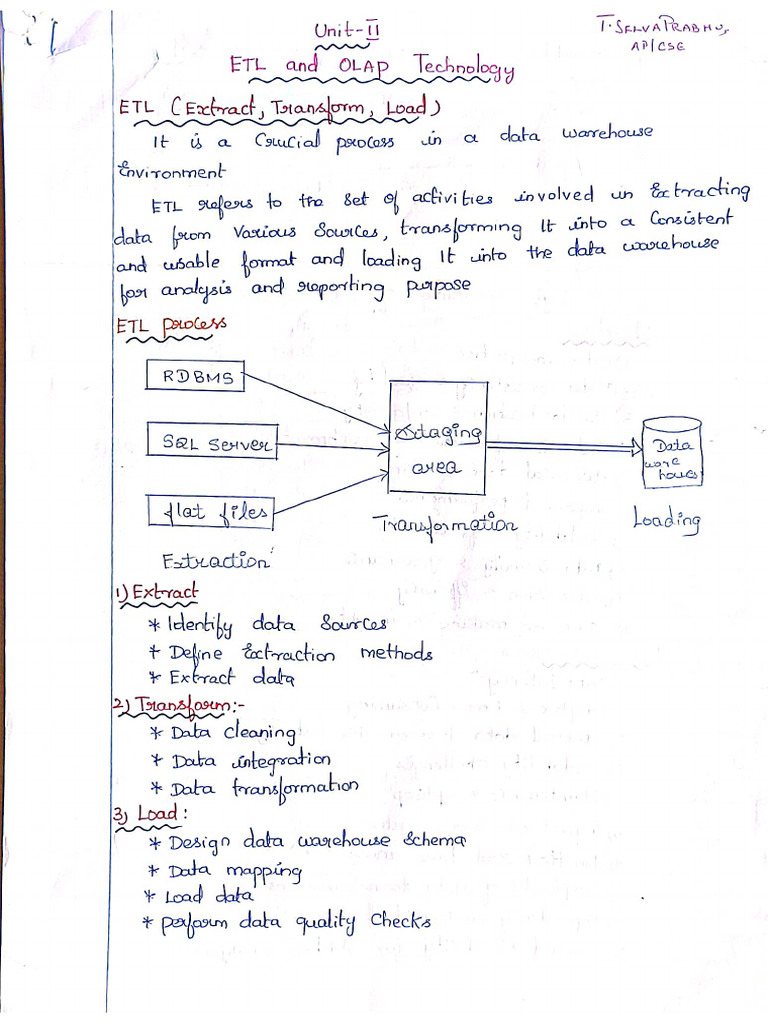 Unit-II
T. SELVAPRABHU,
AP/CSE
ETL and OLAP Technology
ETL (Extract, Transform, Load)
It is a Crucial process in a data warehouse
Environment
ETL refers to the set of activities involved in Extracting
data from Various Sources, transforming It into a Consistent
and usable format and loading It into the data warehouse
for analysis and reporting purpose
ETL process
RDBMS
SQL Server
flat files
Extraction
Staging
area
Transformation
Data
ware
houses
Loading
1) Extract
* Identify data Sources
* Define Extraction methods
* Extract data
2) Transform:-
* Data cleaning
* Data integration
* Data transformation
3) Load:
* Design data warehouse Schema
* Data mapping
* Load data
* perform data quality Checks